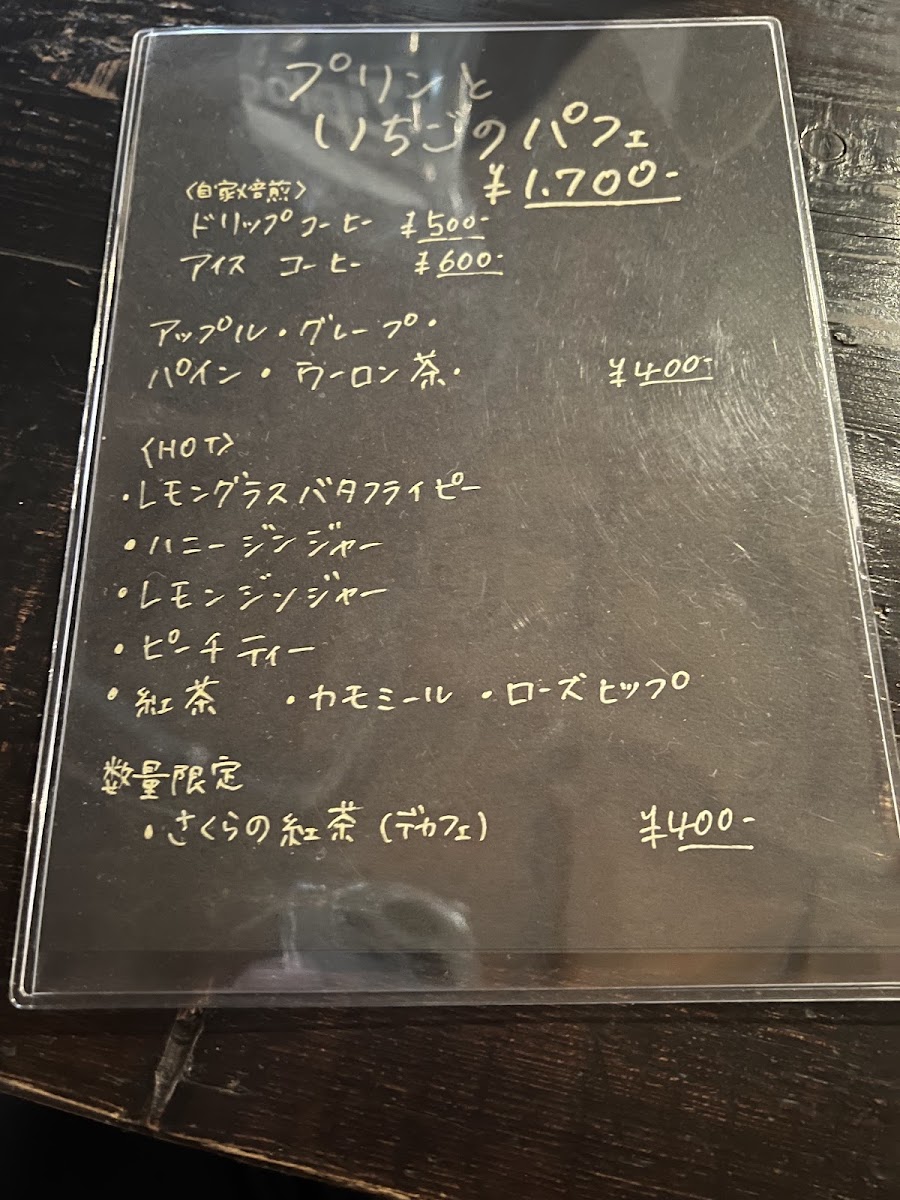 プリンと
いちごのパフェ
¥1.700-
〈自家焙煎〉
ドリップコーヒー ¥500-
アイス コーヒー ¥600-
アップル・グレープ・
パイン・ウーロン茶・ ¥400-
〈HOT〉
・レモングラスバタフライピー
・ハニージンジャー
・レモンジンジャー
・ピーチティー
・紅茶 ・カモミール ・ローズヒップ
数量限定
・さくらの紅茶(デカフェ) ¥400-